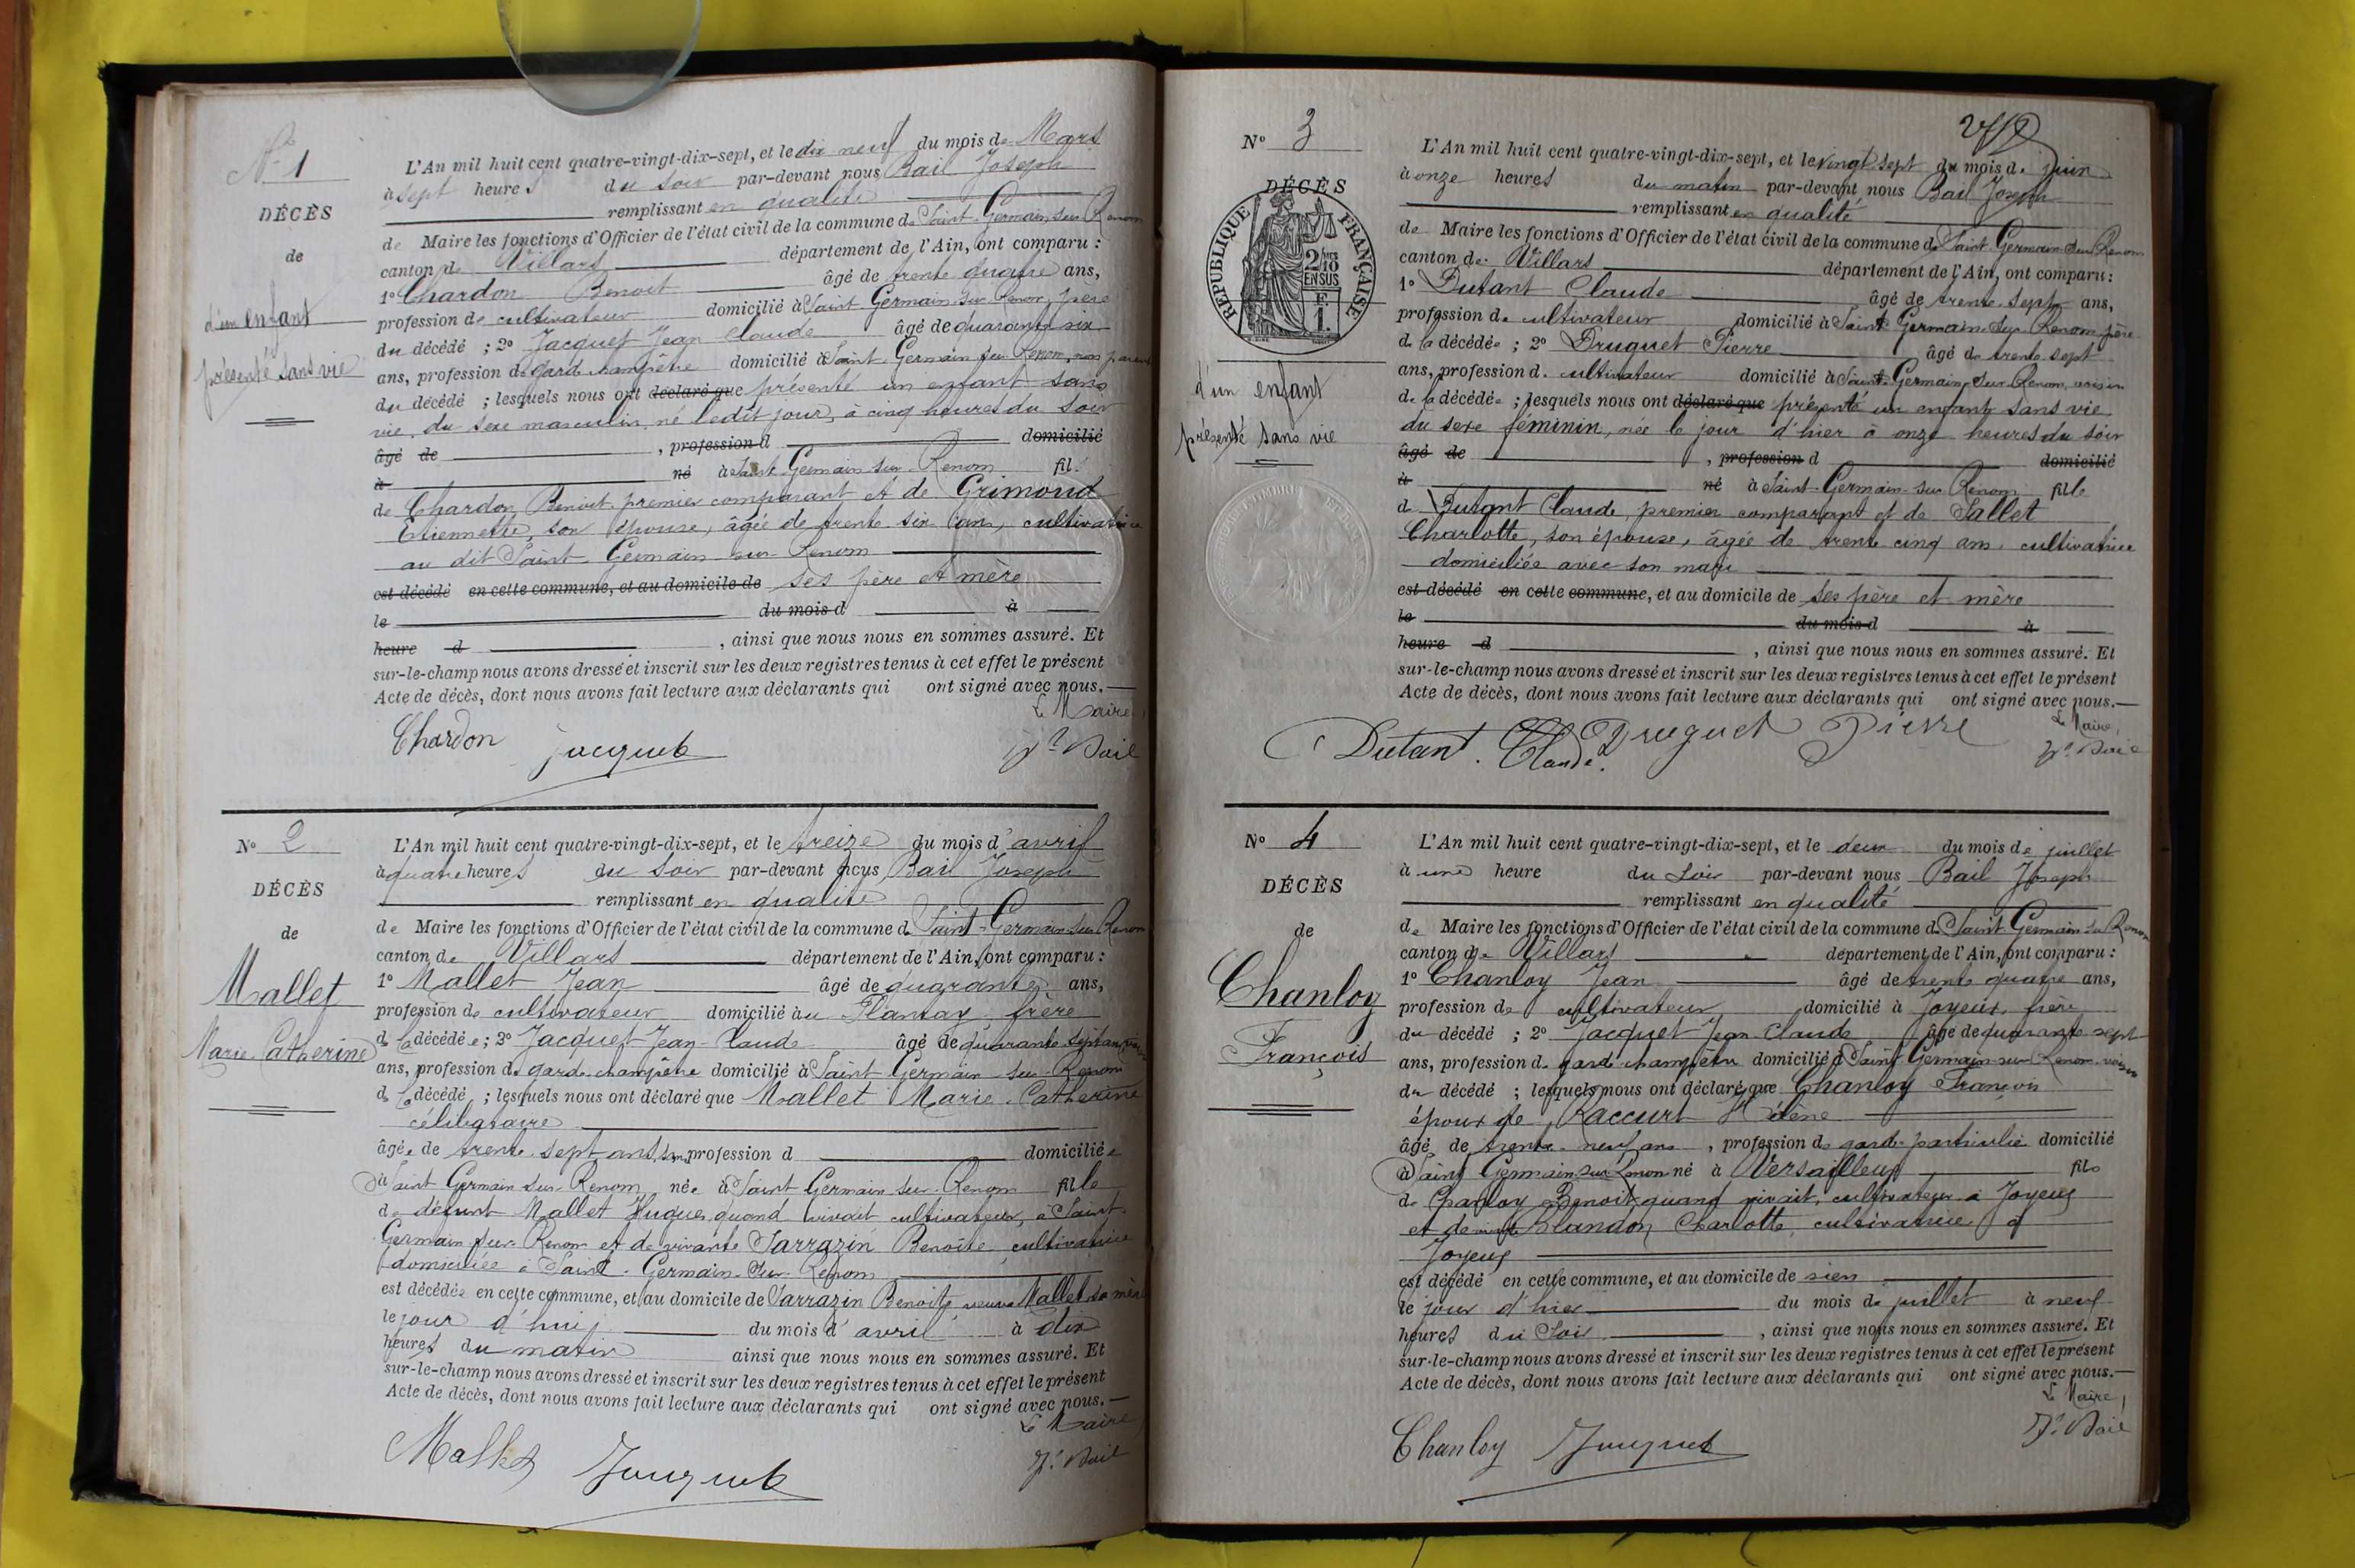 N° 1
DÉCÈS
de
d'un enfant
présenté sans vie
L'An mil huit cent quatre-vingt-dix-sept, et le dix neuf du mois de Mars
à sept heures du soir par-devant nous Bail Joseph
remplissant en qualité
de Maire les fonctions d'Officier de l'état civil de la commune de Saint-Germain sur Renom
canton de Villars département de l'Ain, ont comparu :
1° Chardon Benoit âgé de trente quatre ans,
profession de cultivateur domicilié à Saint Germain sur Renom, père
du décédé ; 2° Jacquet Jean Claude âgé de quarante six
ans, profession de garde champêtre domicilié à Saint-Germain sur Renom, non parent
du décédé ; lesquels nous ont déclaré que présenté un enfant sans
vie, du sexe masculin, né ledit jour, à cinq heures du soir
âgé de , profession d domicilié
à né à Saint Germain sur Renom fils
de Chardon Benoit premier comparant et de Grimoud
Etiennette, son épouse, âgée de trente six ans, cultivatrice
au dit Saint-Germain sur Renom
est décédé en cette commune, et au domicile de ses père et mère
le du mois d à
heure d , ainsi que nous nous en sommes assuré. Et
sur-le-champ nous avons dressé et inscrit sur les deux registres tenus à cet effet le présent
Acte de décès, dont nous avons fait lecture aux déclarants qui ont signé avec nous.
Le Maire
Chardon Jacquet Jh Bail
N° 2
DÉCÈS
de
Mallet
Marie Catherine
L'An mil huit cent quatre-vingt-dix-sept, et le treize du mois d'avril
à quatre heures du soir par-devant nous Bail Joseph
remplissant en qualité
de Maire les fonctions d'Officier de l'état civil de la commune de Saint-Germain sur Renom
canton de Villars département de l'Ain, ont comparu :
1° Mallet Jean âgé de quarante ans,
profession de cultivateur domicilié au Plantay, frère
de la décédée ; 2° Jacquet Jean Claude âgé de quarante sept ans
ans, profession de garde champêtre domicilié à Saint Germain sur Renom
de la décédé ; lesquels nous ont déclaré que Mallet Marie Catherine
célibataire
âgée de trente sept ans, sans profession d domiciliée
à Saint Germain sur Renom née à Saint Germain sur Renom fille
de défunt Mallet Hugues, quand vivait cultivateur, à Saint-
Germain sur Renom et de vivante Sarrazin Benoite, cultivatrice
domiciliée à Saint-Germain-sur-Renom
est décédée en cette commune, et au domicile de Sarrazin Benoite, veuve Mallet sa mère
le jour d'hui du mois d'avril à dix
heures du matin ainsi que nous nous en sommes assuré. Et
sur-le-champ nous avons dressé et inscrit sur les deux registres tenus à cet effet le présent
Acte de décès, dont nous avons fait lecture aux déclarants qui ont signé avec nous.
Le Maire
Mallet Jacquet Jh Bail
N° 3
DÉCÈS
RÉPUBLIQUE FRANÇAISE
2/10
EN SUS
d'un enfant
présenté sans vie
L'An mil huit cent quatre-vingt-dix-sept, et le vingt sept du mois de juin
à onze heures du matin par-devant nous Bail Joseph
remplissant en qualité
de Maire les fonctions d'Officier de l'état civil de la commune de Saint-Germain sur Renom
canton de Villars département de l'Ain, ont comparu :
1° Dutant Claude âgé de trente sept ans,
profession de cultivateur domicilié à Saint Germain sur Renom père
de la décédée ; 2° Druguet Pierre âgé de trente sept
ans, profession de cultivateur domicilié à Saint-Germain-sur-Renom, voisin
de la décédée ; lesquels nous ont déclaré que présenté un enfant sans vie
du sexe féminin, née le jour d'hier à onze heures du soir
âgé de , profession d domicilié
à né à Saint-Germain-sur-Renom fille
de Dutant Claude, premier comparant et de Sallet
Charlotte, son épouse, âgée de trente cinq ans, cultivatrice
domiciliée avec son mari
est décédé en cette commune, et au domicile de ses père et mère
le du mois d à
heure d , ainsi que nous nous en sommes assuré. Et
sur-le-champ nous avons dressé et inscrit sur les deux registres tenus à cet effet le présent
Acte de décès, dont nous avons fait lecture aux déclarants qui ont signé avec nous.
Le Maire,
Dutant Claude. Druguet Pierre Jh Bail
N° 4
DÉCÈS
de
Chanloy
François
L'An mil huit cent quatre-vingt-dix-sept, et le deux du mois de juillet
à une heure du soir par-devant nous Bail Joseph
remplissant en qualité
de Maire les fonctions d'Officier de l'état civil de la commune de Saint Germain su Renom
canton de Villars département de l'Ain, ont comparu :
1° Chanloy Jean âgé de trente quatre ans,
profession de cultivateur domicilié à Joyeux, frère
du décédé ; 2° Jacquet Jean Claude âgé de quarante sept
ans, profession de garde champêtre domicilié à Saint Germain-sur-Renom voisin
du décédé ; lesquels nous ont déclaré que Chanloy François
époux de Raccurt Hélène
âgé de trente-neuf ans, profession de garde particulier domicilié
à Saint Germain sur Renom né à Versailleux fils
de Chanloy Benoit, quand vivait, cultivateur à Joyeux
et de vivante Blandon Charlotte, cultivatrice à
Joyeux
est décédé en cette commune, et au domicile de sien
le jour d'hier du mois de juillet à neuf
heures du soir , ainsi que nous nous en sommes assuré. Et
sur-le-champ nous avons dressé et inscrit sur les deux registres tenus à cet effet le présent
Acte de décès, dont nous avons fait lecture aux déclarants qui ont signé avec nous.
Le Maire,
Chanloy Jacquet Jh Bail